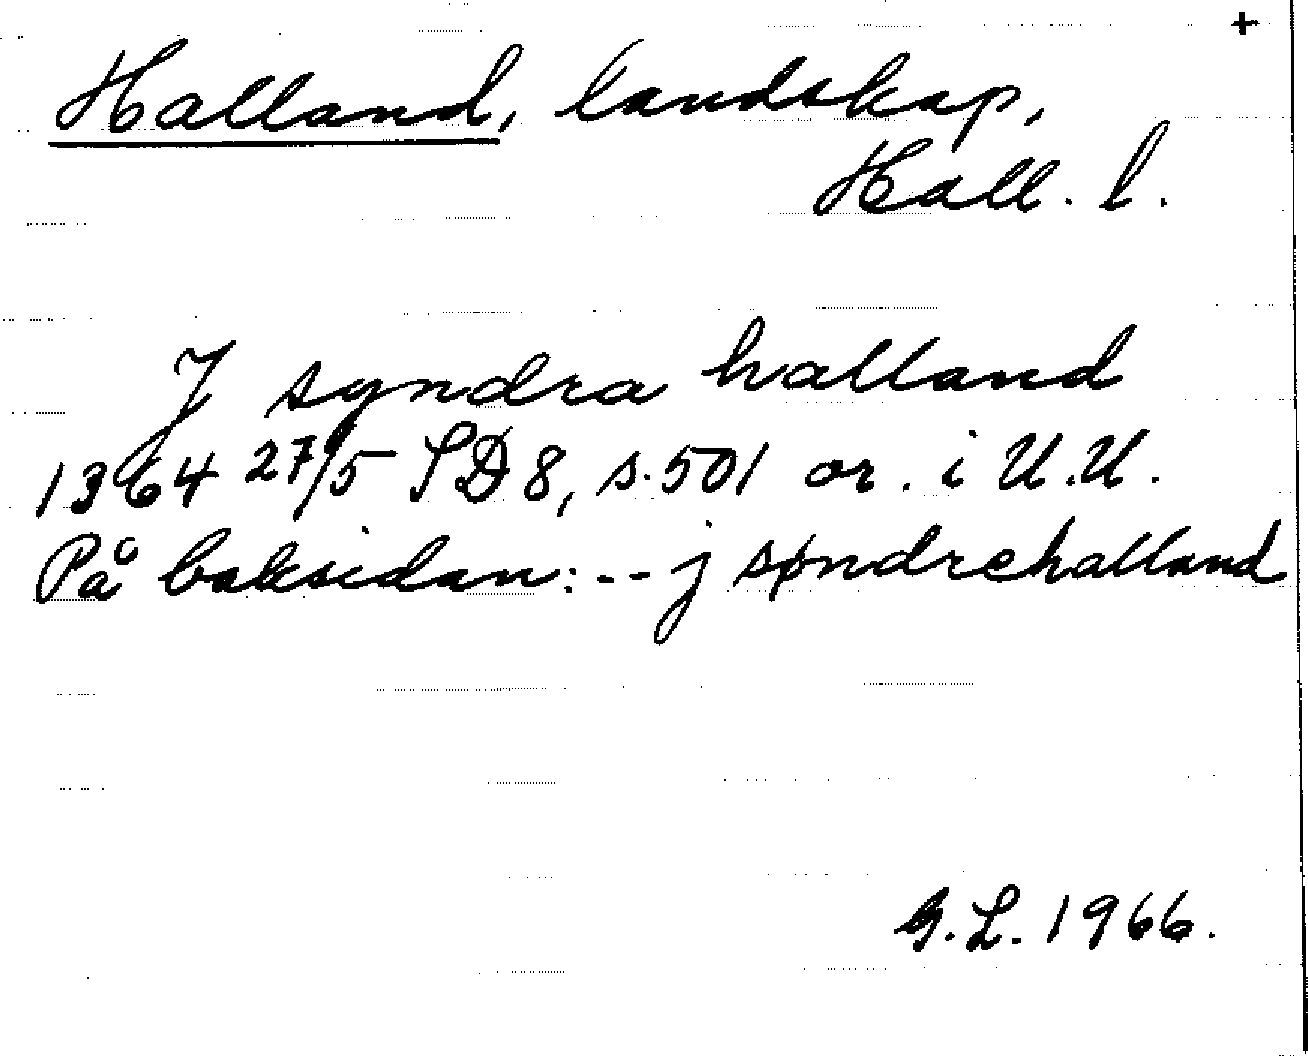 +
Halland, landskap,
Hall. l.
J syndra halland
1364 27/5 SD 8, s. 501 or. i U.U.
På baksidan: -- j søndrehalland
G.L. 1966.